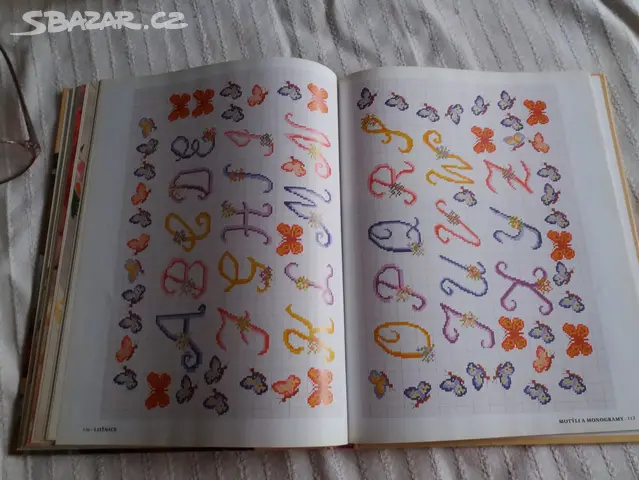 SBAZAR.CZ
A B C D E
F G H I J
K L M N
O P Q R S
T U V W
X Y Z
LOŽNICE
MOTÝLI A MONOGRAMY